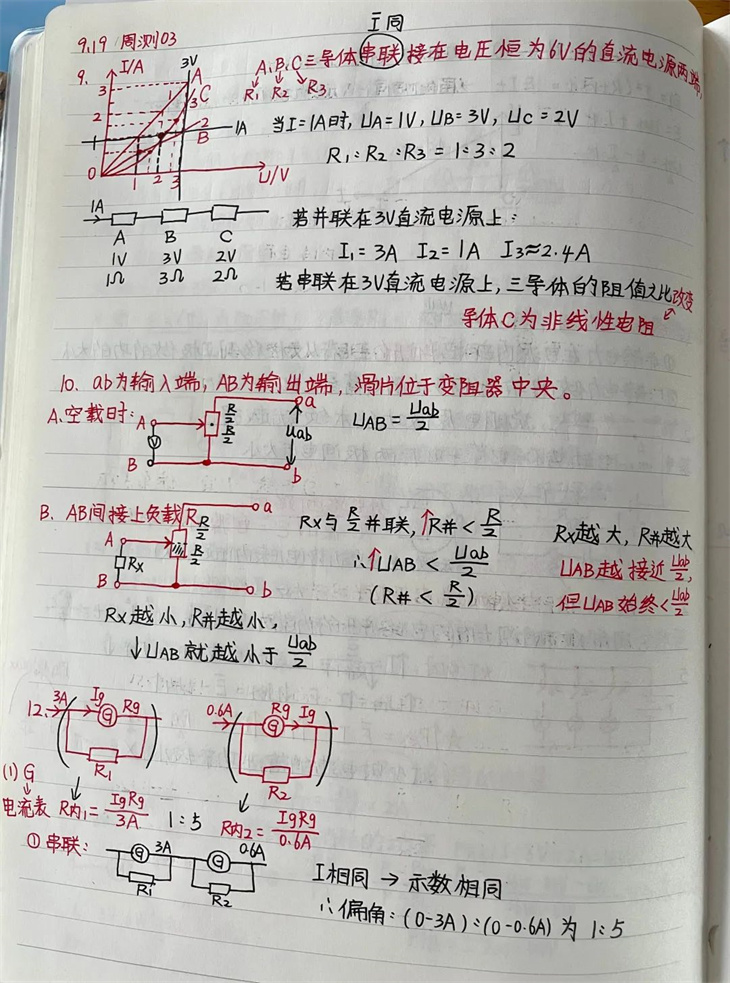 I同
9.19 周测03
A、B、C三导体串联接在电压恒为6V的直流电源两端,
R₁ R₂ R₃
9.
I/A
3V
A
C
B
3
2
1
0
1 2 3
U/V
3
2
1A
当I=1A时, UA=1V, UB=3V, UC=2V
R₁:R₂:R₃=1:3:2
1A
A B C
1V 3V 2V
1Ω 3Ω 2Ω
若并联在3V直流电源上:
I₁=3A I₂=1A I₃≈2.4A
若串联在3V直流电源上,三导体的阻值之比改变
导体C为非线性电阻
10. ab为输入端, AB为输出端, 滑片位于变阻器中央。
A.空载时:
A
V
B
R/2
R/2
a
Uab
b
UAB=Uab/2
B. AB间接上负载R
A
Rx
B
R/2
R/2
a
b
Rx与R/2并联,↑R并<R/2
∴↑UAB<Uab/2
(R并<R/2)
Rx越大, R并越大
UAB越接近Uab/2,
但UAB始终<Uab/2
Rx越小, R并越小,
↓UAB就越小于Uab/2
12.
3A Ig Rg
G
R₁
0.6A Rg Ig
G
R₂
(1) G
↓
电流表 R内₁=IgRg/3A 1:5 R内₂=IgRg/0.6A
①串联:
G 3A G 0.6A
R₁ R₂
I相同→示数相同
∴偏角:(0-3A):(0-0.6A)为1:5